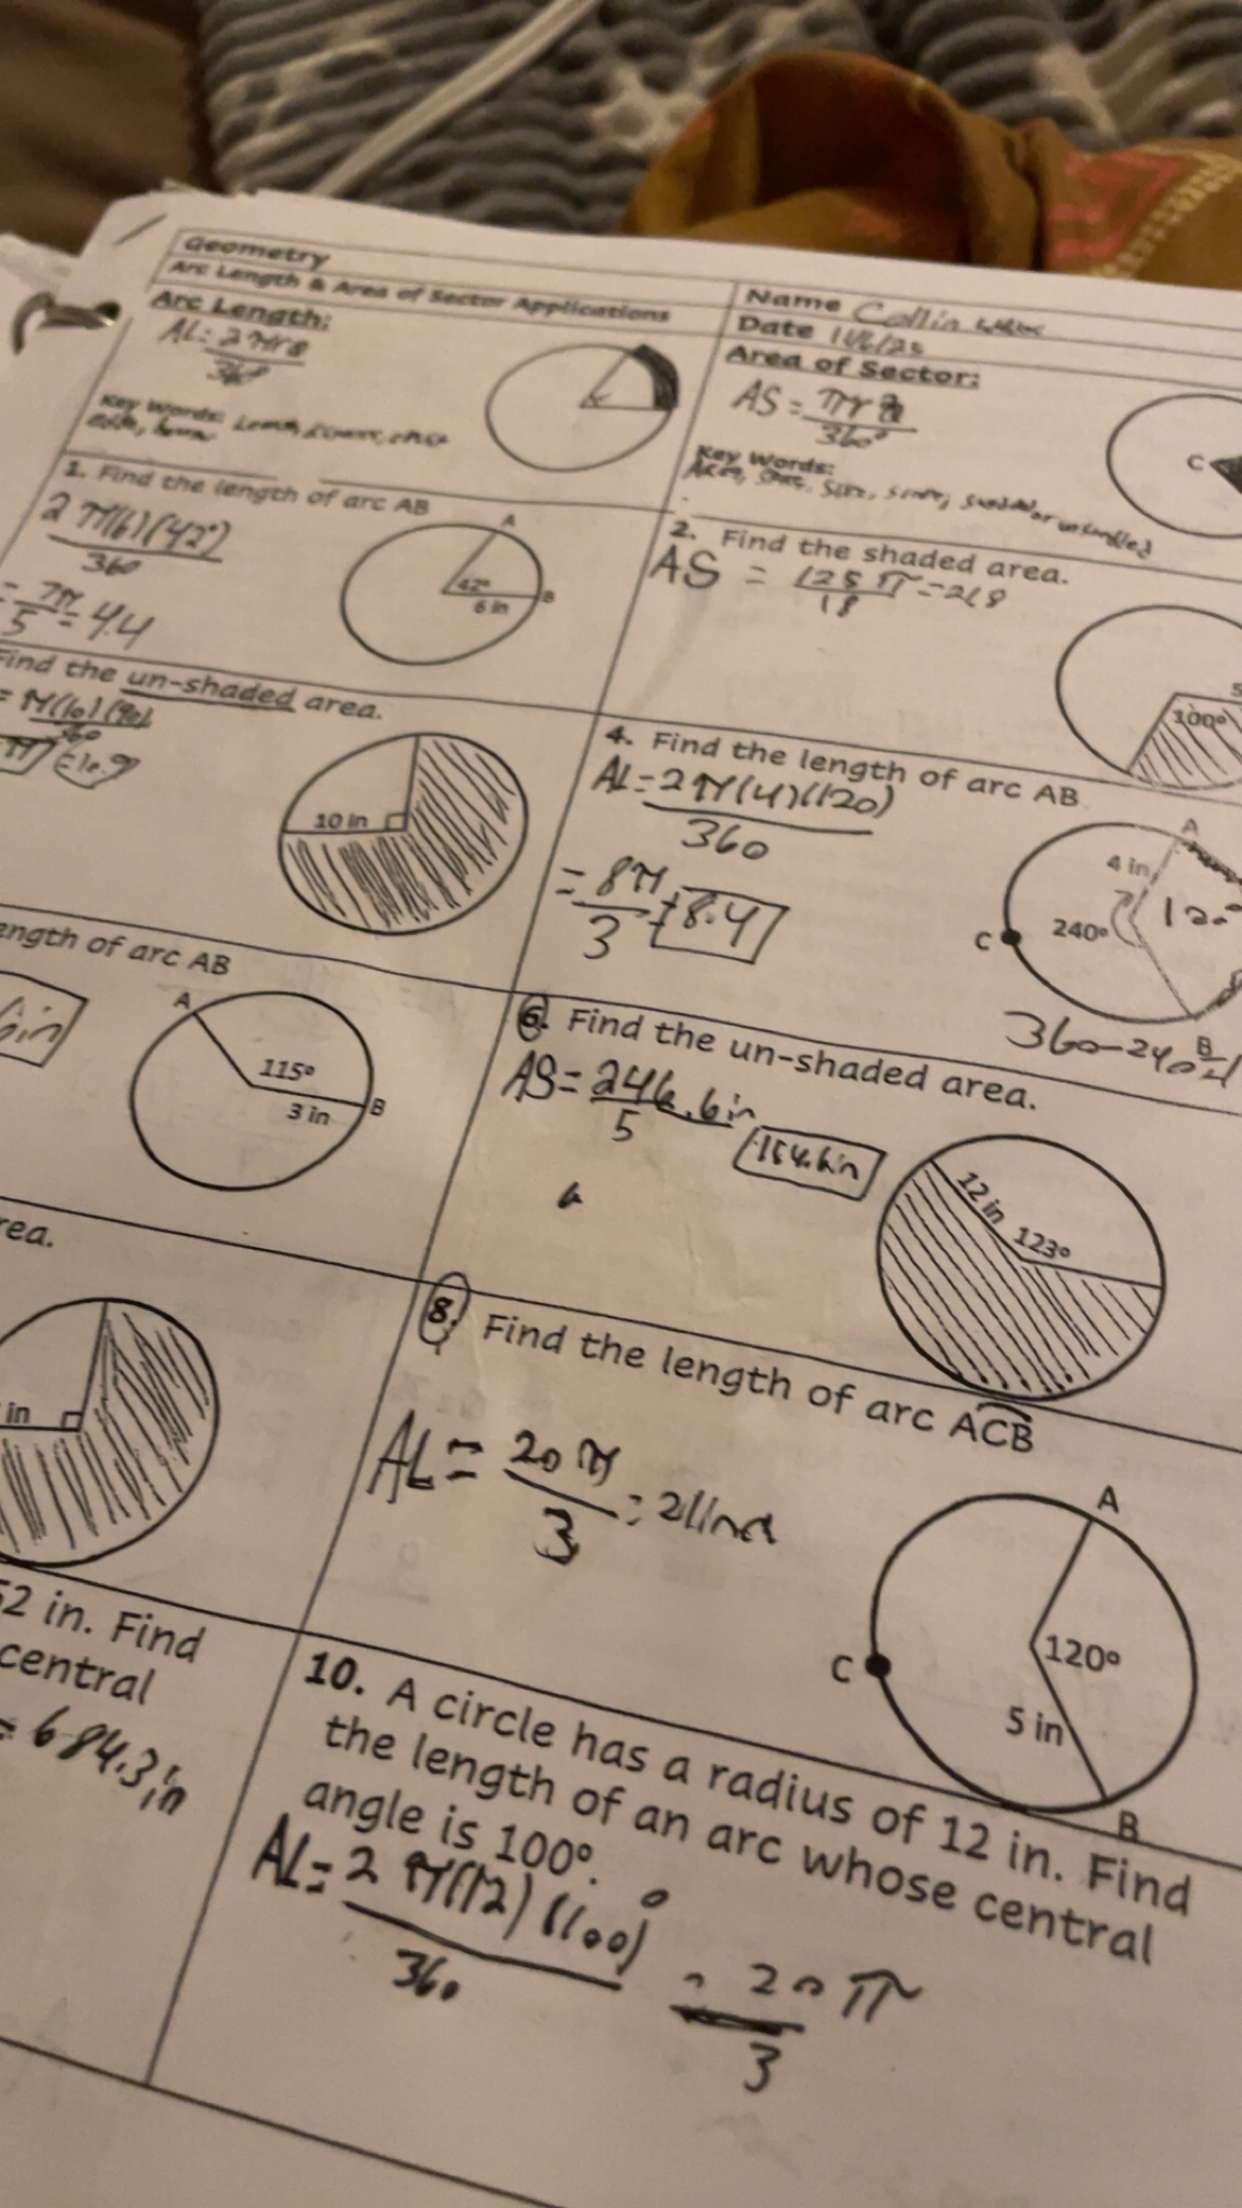 Geometry
Arc Length & Area of Sector Applications
Name Collin
Date
Arc Length:
AL = 2πrθ
360
Key Words:
Area of Sector:
AS =
360°
C
Key Words:
1. Find the length of arc AB
2π(6)(42°)
360
= 7π = 4.4
5
A
42°
6 in
B
2. Find the shaded area.
AS = 125 π = 218
18
100°
Find the un-shaded area.
= π(10)(90)
10 in
4. Find the length of arc AB
AL = 2π(4)(120)
360
= 8π = 8.4
3
A
4 in
240°
120°
C
B
360-240
ength of arc AB
in
A
115°
3 in
B
6. Find the un-shaded area.
AS = 246.6in
5
154.6in
12 in
123°
rea.
in
8. Find the length of arc ACB
AL = 20π = 21
3
A
120°
C
5 in
B
52 in. Find
central
= 684.3in
10. A circle has a radius of 12 in. Find
the length of an arc whose central
angle is 100°.
AL = 2π(12)(100)°
360
= 20π
3